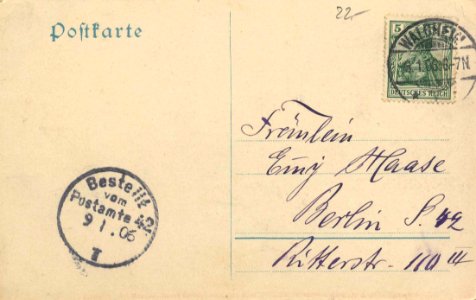 22-
Postkarte
5
WALDHEIM
8.1.06.6-7N
DEUTSCHES REICH
Fräulein
Emy Haase
Berlin S. 42
Ritterstr. 110 III
Bestellt
vom
Postamte 42
9 1. 06
T